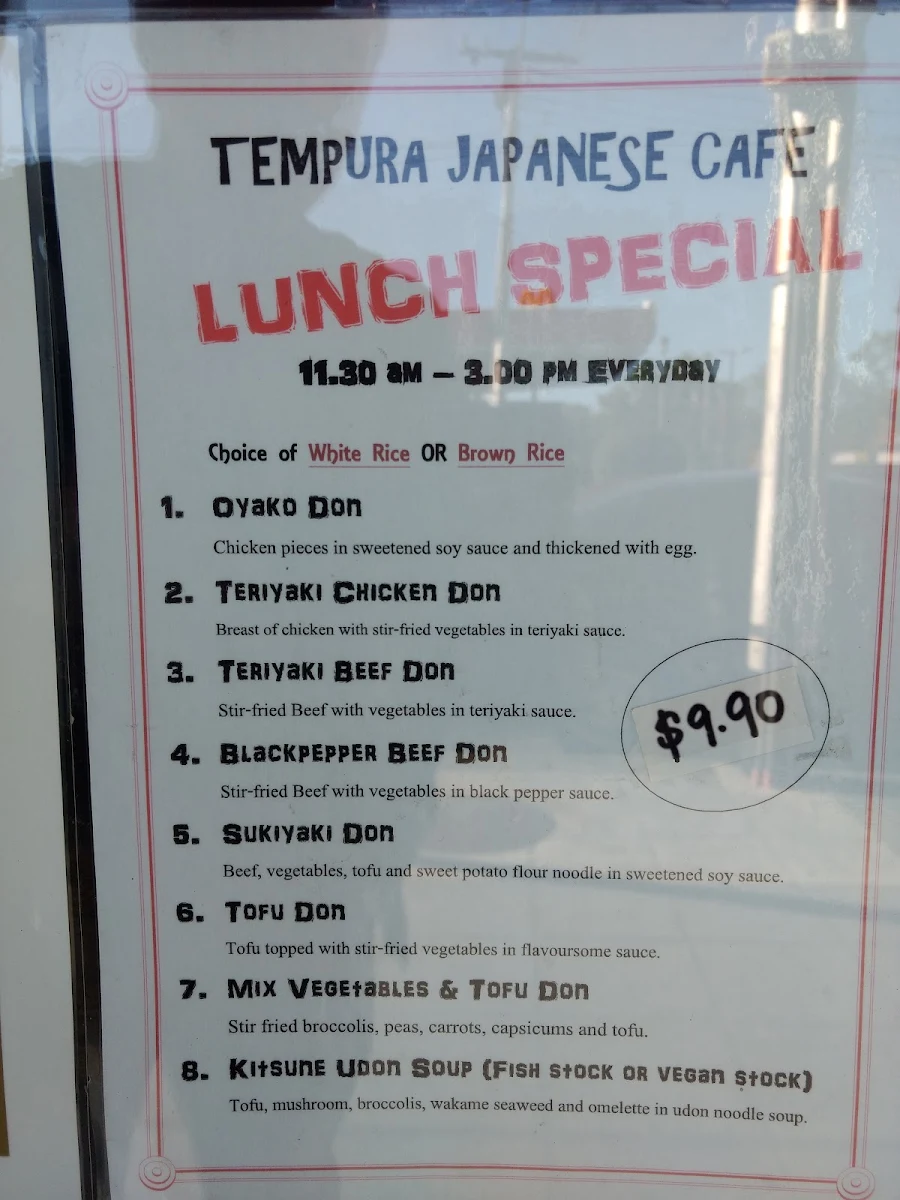 TEMPURA JAPANESE CAFE
LUNCH SPECIAL
11.30 am – 3.00 PM EVERYDAY
Choice of White Rice OR Brown Rice
1. Oyako Don
Chicken pieces in sweetened soy sauce and thickened with egg.
2. Teriyaki Chicken Don
Breast of chicken with stir-fried vegetables in teriyaki sauce.
3. Teriyaki Beef Don
Stir-fried Beef with vegetables in teriyaki sauce.
$9.90
4. Blackpepper Beef Don
Stir-fried Beef with vegetables in black pepper sauce.
5. Sukiyaki Don
Beef, vegetables, tofu and sweet potato flour noodle in sweetened soy sauce.
6. Tofu Don
Tofu topped with stir-fried vegetables in flavoursome sauce.
7. Mix Vegetables & Tofu Don
Stir fried broccolis, peas, carrots, capsicums and tofu.
8. Kitsune Udon Soup (Fish stock or vegan stock)
Tofu, mushroom, broccolis, wakame seaweed and omelette in udon noodle soup.